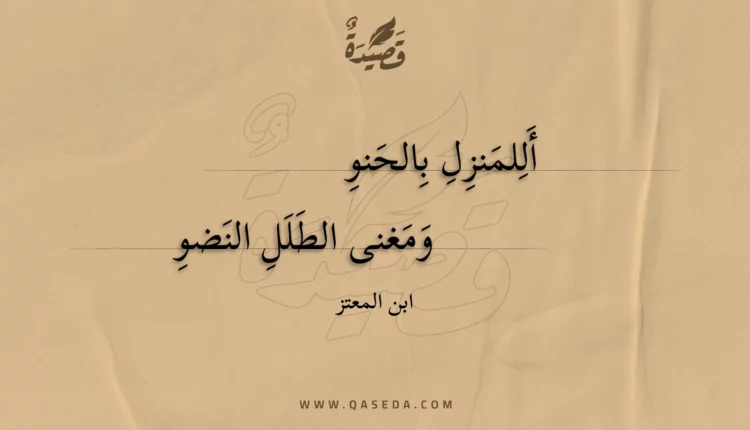 قَصِيدَةٌ
أَلِلمَنزِلِ بِالحَنوِ
وَمَغنى الطَلَلِ النَضوِ
ابن المعتز
WWW.QASEDA.COM